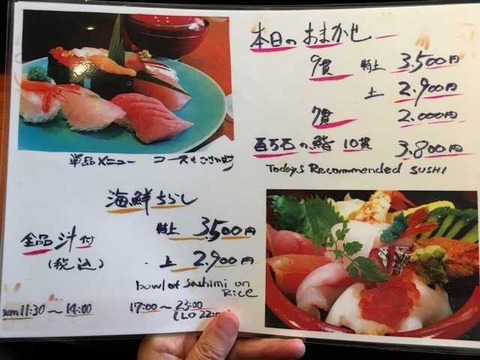 本日のおまかせ
9貫 特上 3,500円
上 2,900円
7貫 2,000円
百万石の鮨 10貫 3,800円
Today's Recommended SUSHI
単品メニュー コースもございます
海鮮ちらし
全品汁付 特上 3,500円
(税込) 上 2,900円
bowl of Sashimi on
Rice
11:30〜14:00 17:00〜23:00
(LO 22: